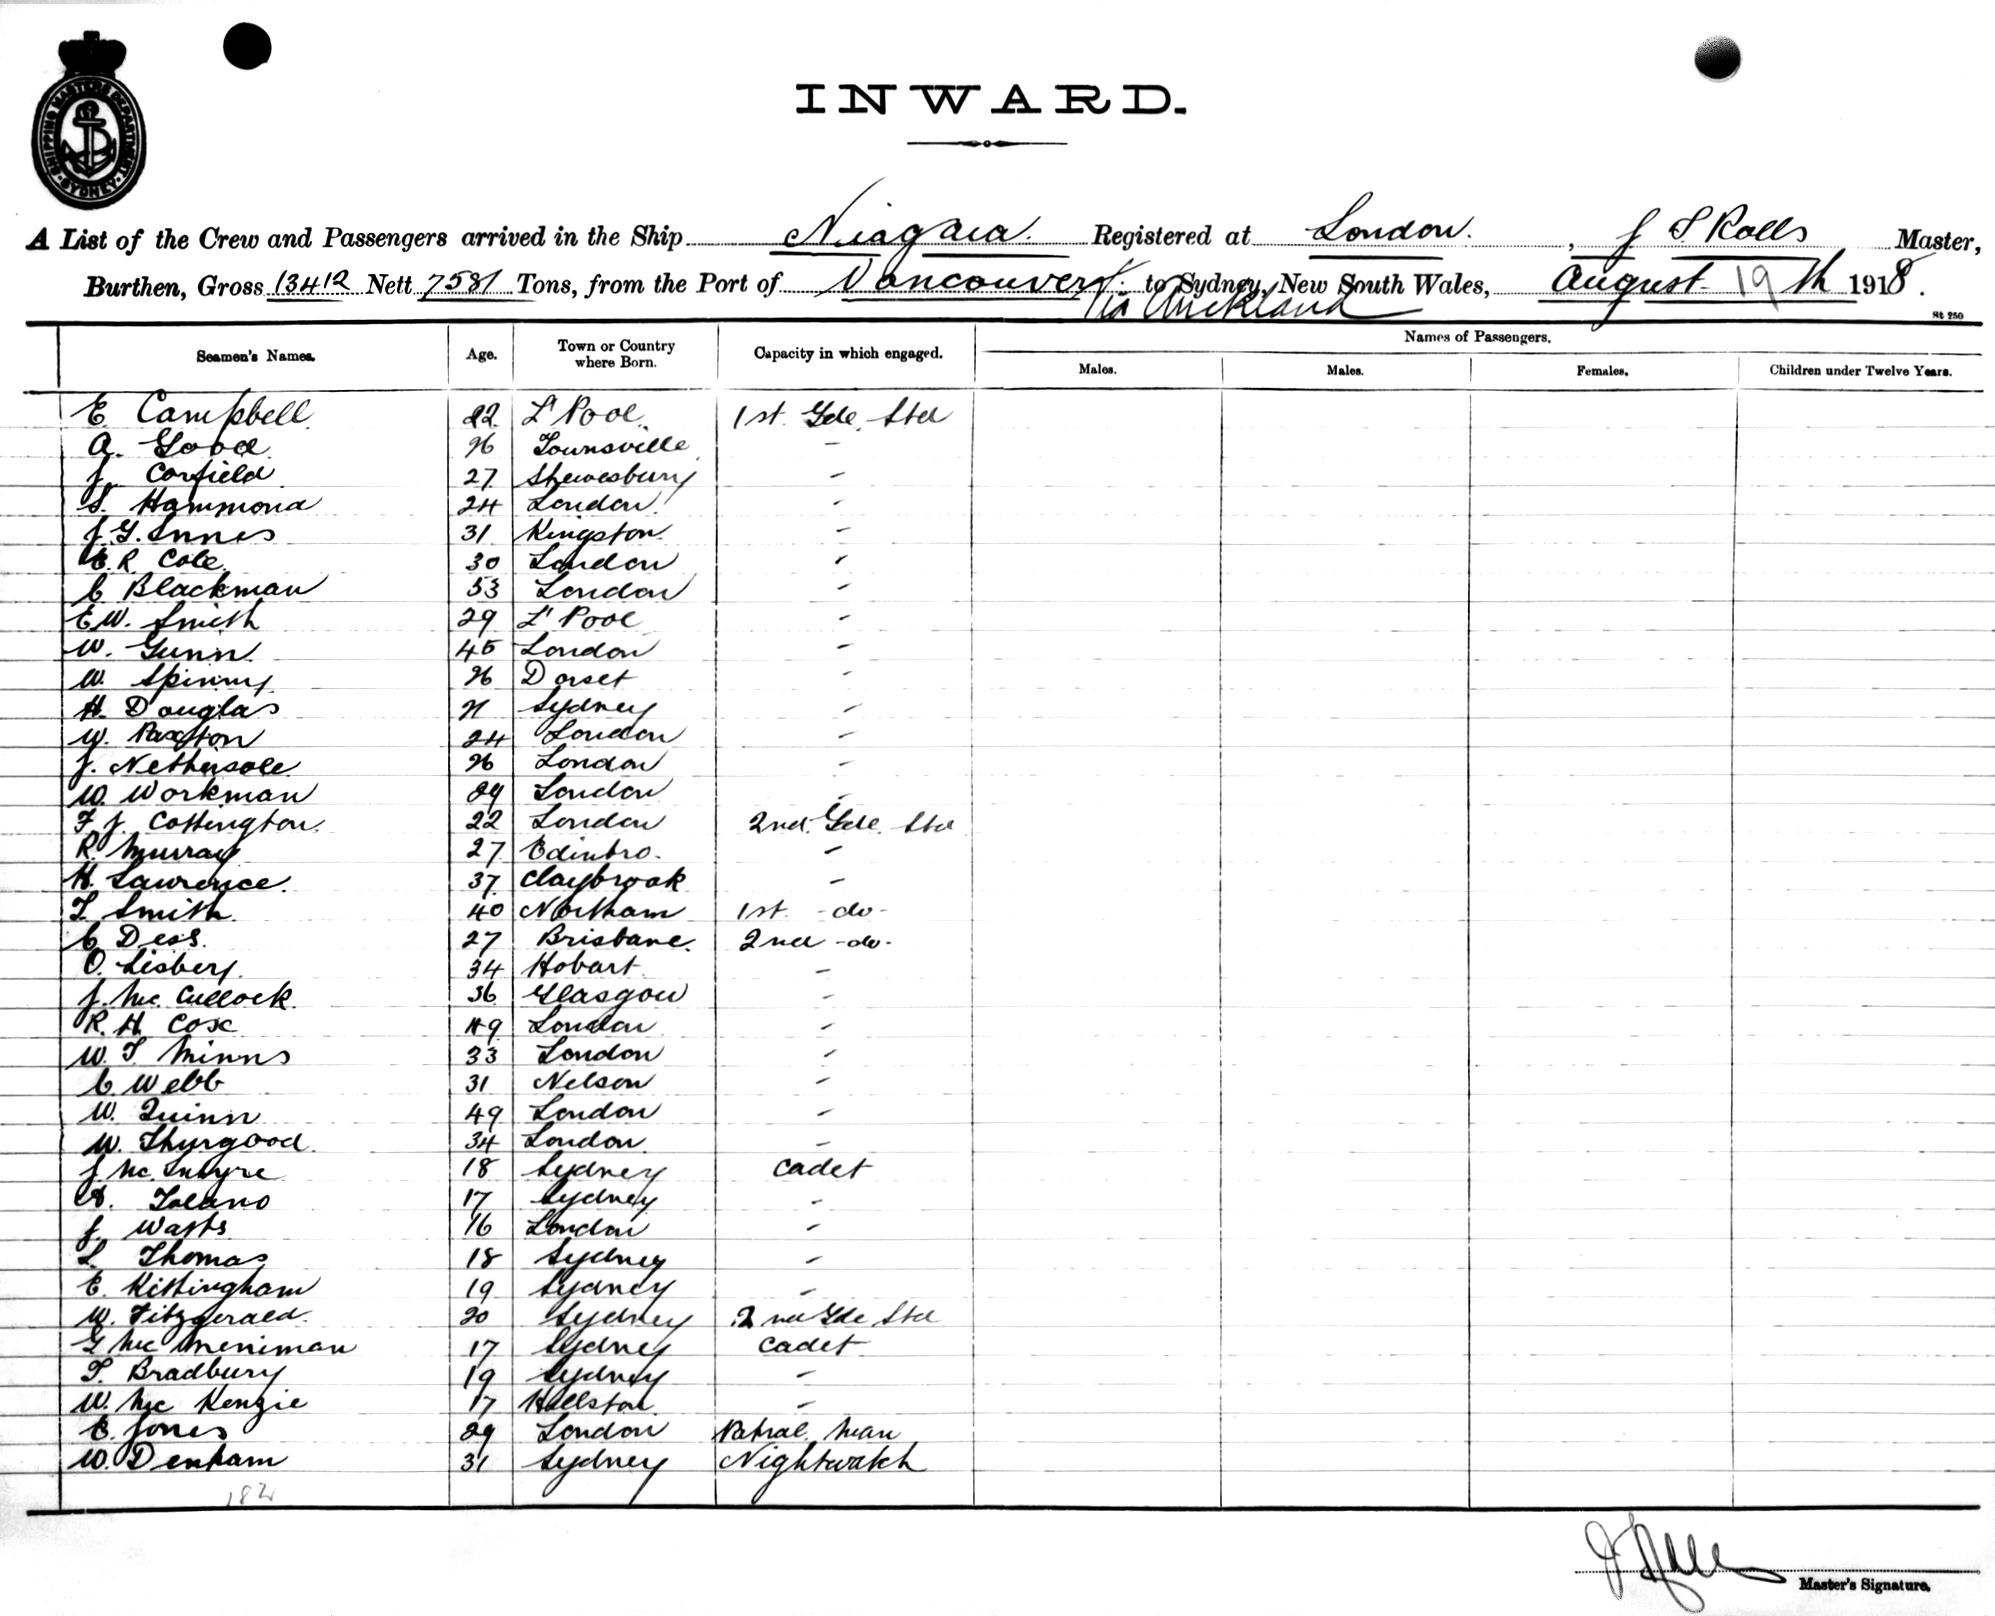 SHIPPING MASTERS DEPARTMENT SYDNEY
INWARD.
A List of the Crew and Passengers arrived in the Ship Niagara. Registered at London. , J S Rolls Master,
Burthen, Gross 13412 Nett 7581 Tons, from the Port of Vancouver to Sydney, New South Wales, August 19th 1918.
Via Auckland
St 250
Seamen's Names. Age. Town or Country where Born. Capacity in which engaged. Names of Passengers.
Males. Males. Females. Children under Twelve Years.
E Campbell 22 L'Pool. 1st. Gde. Std
A. Good 26 Townsville "
J. Corfield 27 Shewesbury "
S. Hammond 24 London. "
J. G. Innes 31 Kingston. "
E. R. Cole. 30 London "
C Blackman 53 London "
E W. Smith 29 L'Pool "
W. Gunn. 45 London "
W. Spinny 26 Dorset "
H. Douglas 21 Sydney "
W. Paxton 24 London "
J. Nethersole. 26 London "
W. Workman 29 London "
F J. Cottington. 22 London 2nd. Gde. Std
R. Murray 27 Edinbro. "
H. Lawrence. 37 Claybrook "
T Smith. 40 Northam 1st. -do-
C Dess. 27 Brisbane. 2nd -do-
O. Lisbery. 34 Hobart "
J. Mc Cullock. 36 Glasgow "
R. H Cox 49 London "
W. T Minns 33 London "
C. Webb 31 Nelson "
W. Quinn 49 London "
W. Thurgood. 34 London. "
J Mc Intyre 18 Sydney Cadet
A. Toland 17 Sydney "
J Watts 16 London "
L. Thomas 18 Sydney "
E. Kittingham 19 Sydney "
W. Fitzgerald. 20 Sydney 2nd Gde Std
G Mc Merriman 17 Sydney Cadet
T. Bradbury 19 Sydney "
W. Mc Kenzie 17 "
E. Jones 29 London Patrol. Man
W. Denham 31 Sydney Nightwatch
182
Master's Signature.